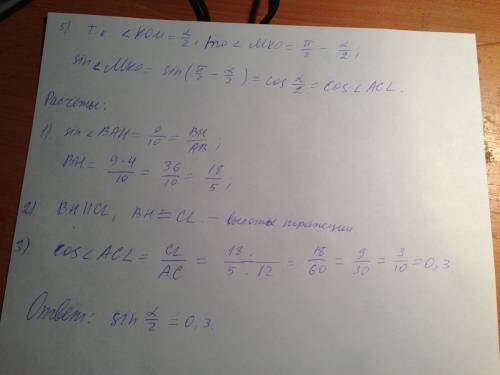 5) Т.к ∠KOM = α/2, то ∠MKO = π/2 − α/2;
sin∠MKO = sin(π/2 − α/2) = cos α/2 = cos∠ACL.
Расчеты:
1) sin∠BAH = 9/10 = BH/AB;
BH = 9·4/10 = 36/10 = 18/5;
2) BH||CL, BH = CL – высоты трапеции
3). cos∠ACL = CL/AC = 18/5·12 = 18/60 = 9/30 = 3/10 = 0,3.
Ответ: sin α/2 = 0,3.